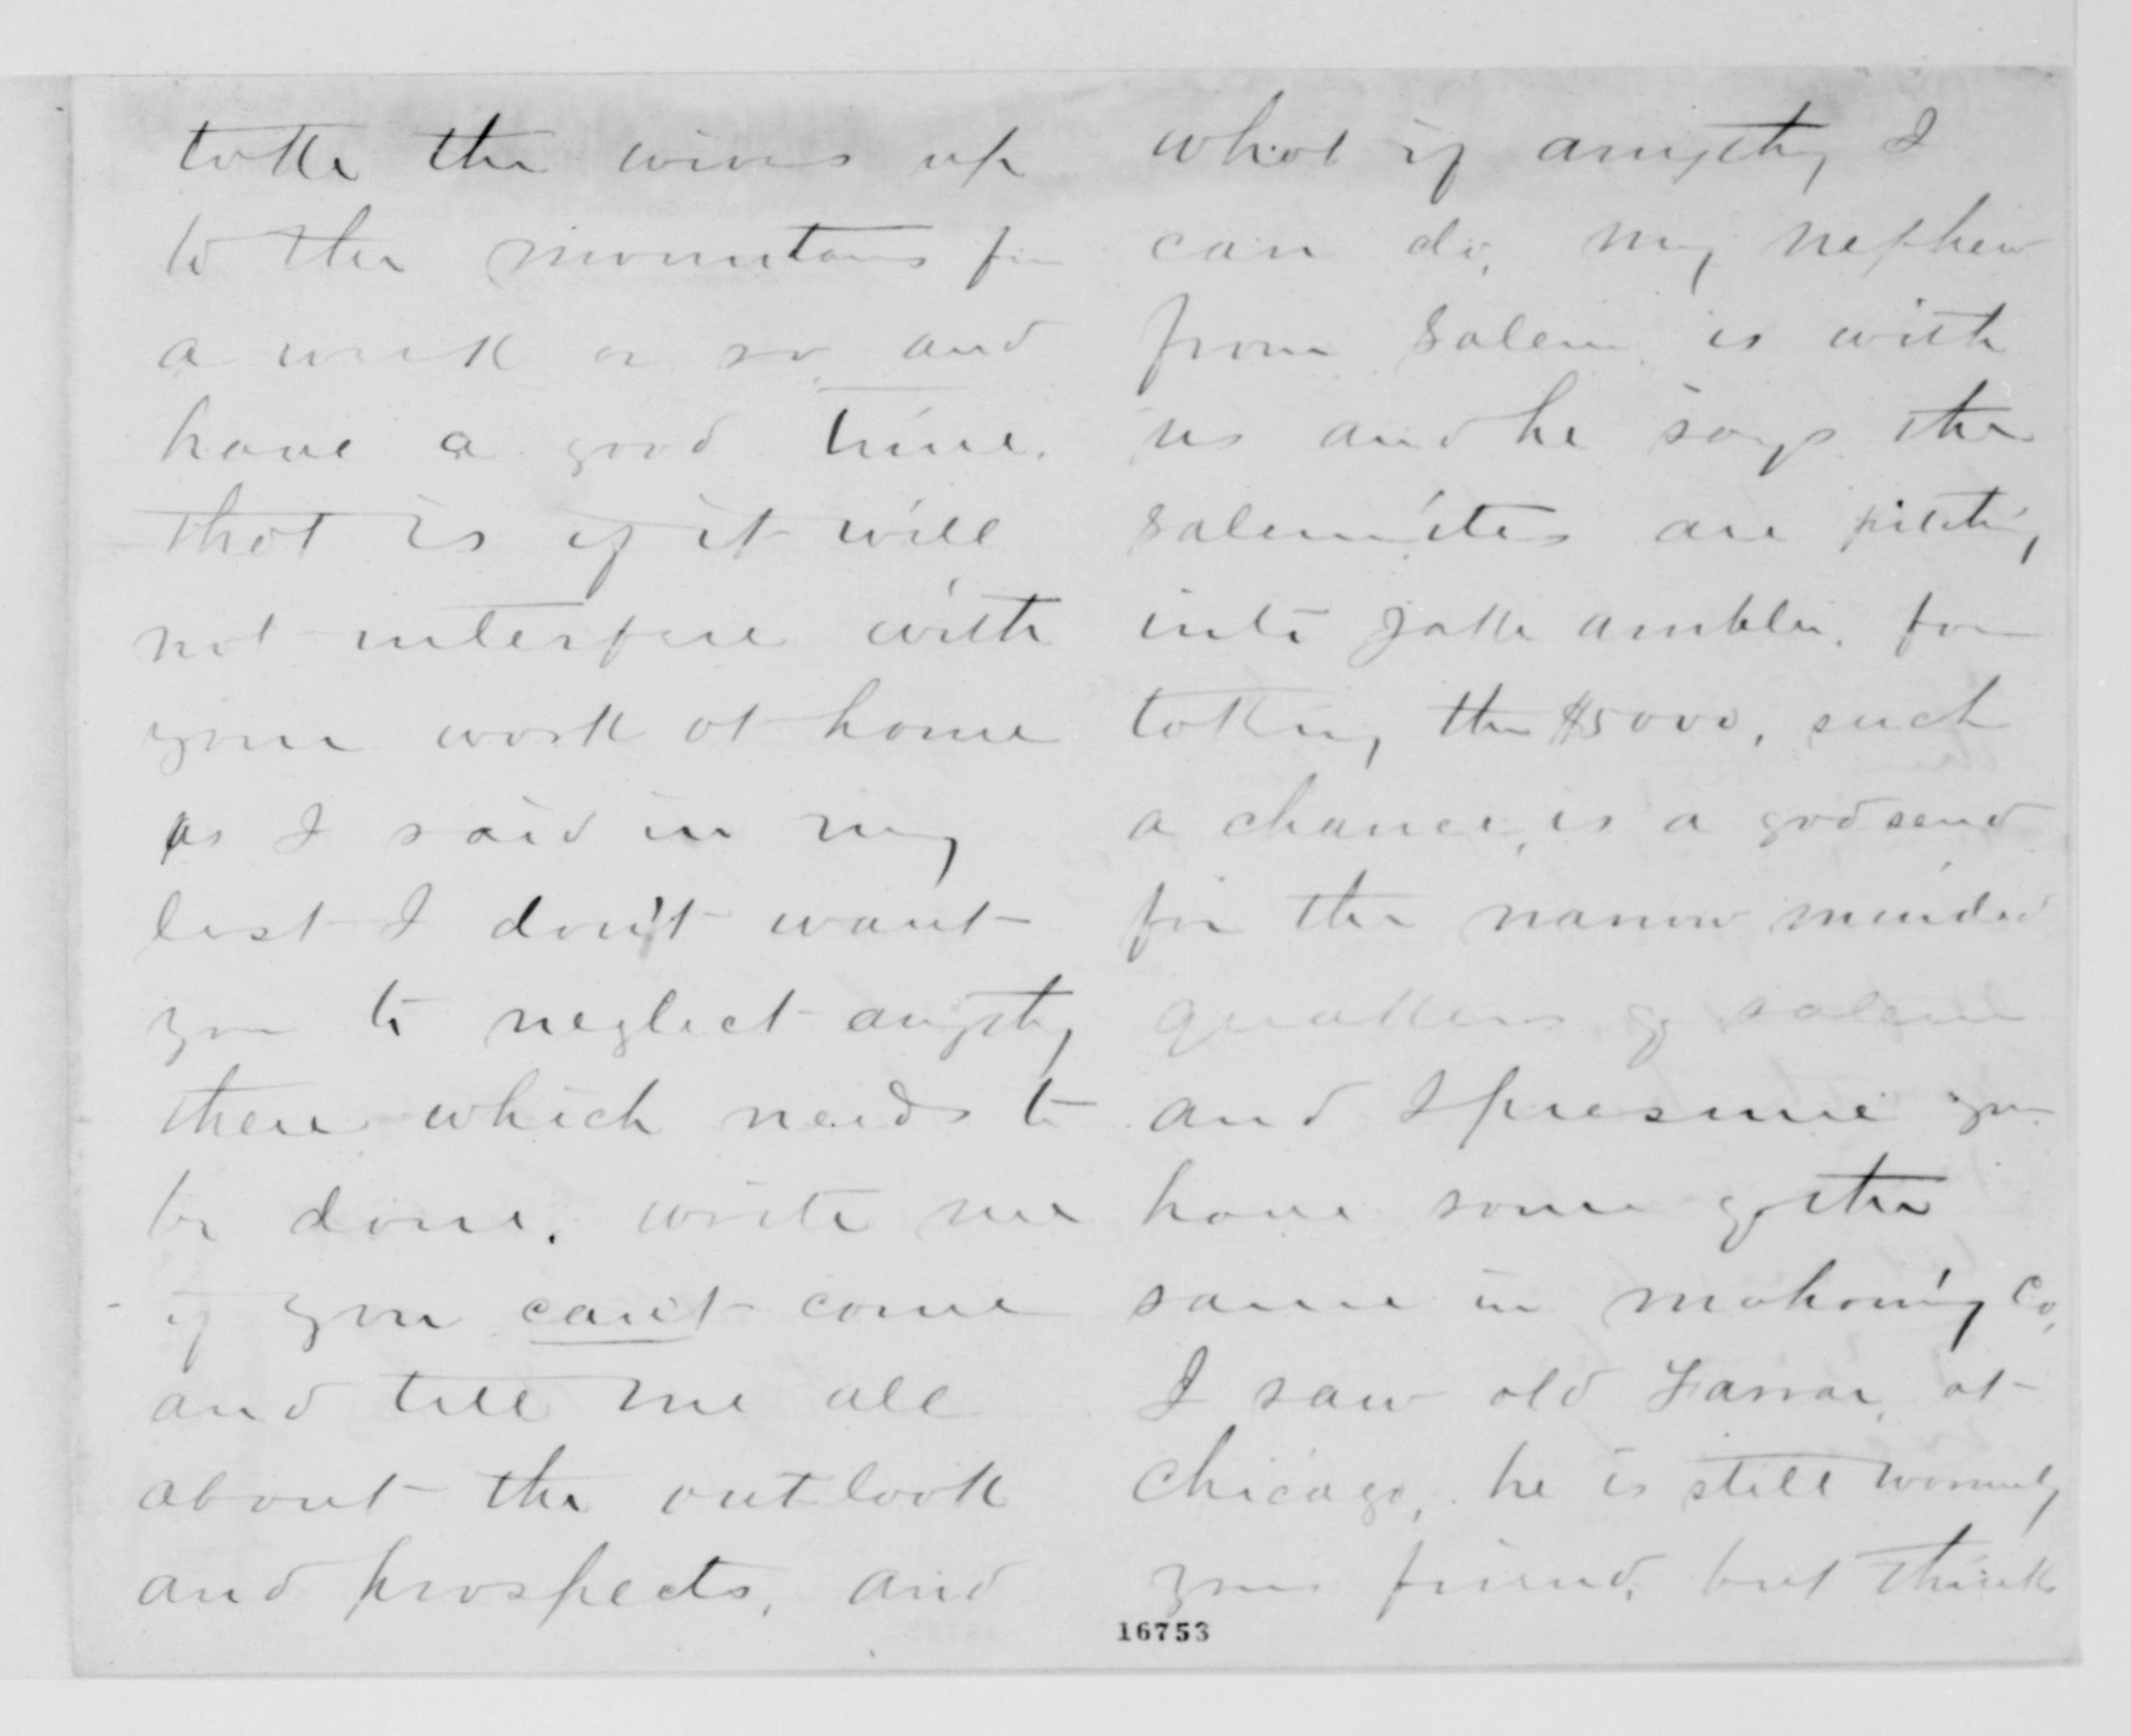 take the wives up
to the mountains for
a week or so and
have a good time.
that is if it will
not interfere with
your work at home
as I said in my
last I don't want
you to neglect anything
there which needs to
be done. write me
if you can't come
and tell me all
about the outlook
and prospects, and
what if anything I
can do, my nephew
from Salem is with
us and he says the
Salemites are pitching
into Jake Ambler. for
taking the $5000, such
a chance, is a godsend
for the narrow minded
quakers of Salem
and I presume you
have some of the
same in Mahoning Co,
I saw old Farrar, at
Chicago, he is still warmly
your friend, but thinks
16753